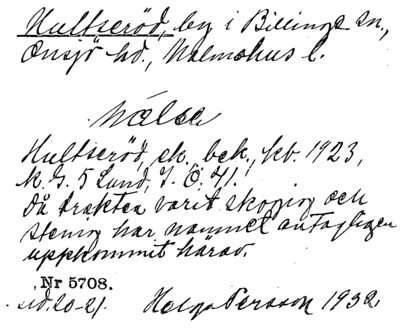 Hultseröd, by i Billinge sn.,
Onsjö hd., Malmöhus l.
Hultseröd, ek. bek., kb. 1923,
K. J. 5 Lund, J. Ö. 41.
Då trakten varit skogig och
stenig har namnet antagligen
uppkommit härav.
Nr 5708.
sid. 20-21. Helge Persson 1932